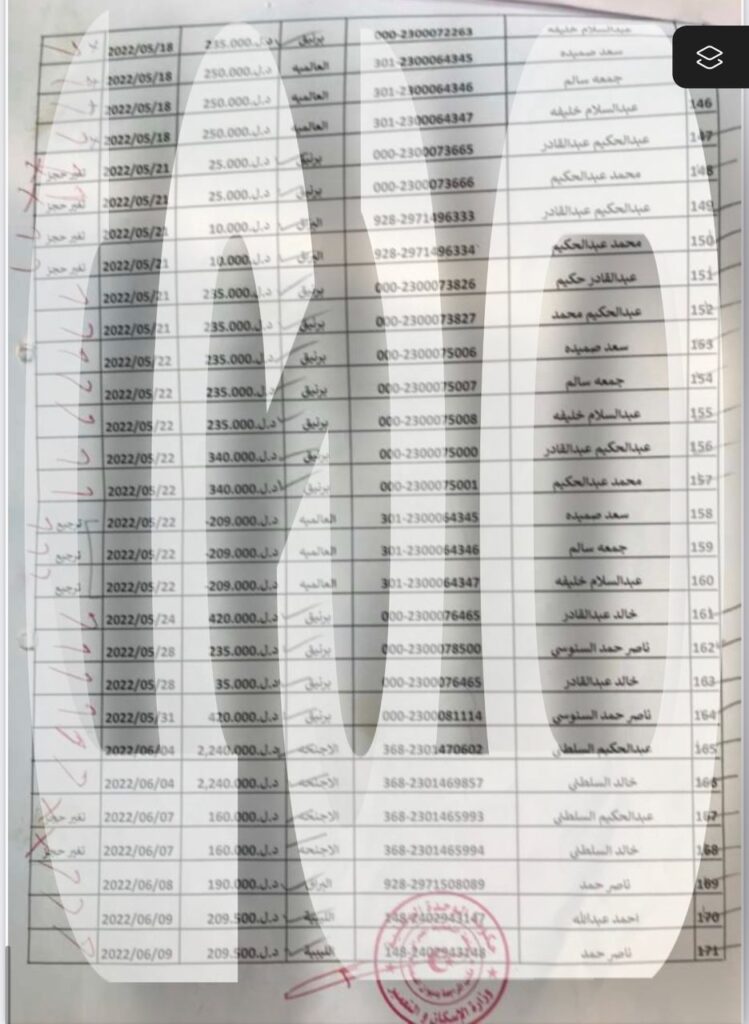 عبدالسلام خليفه 000-2300072263 برنيق د.ل.235.000 2022/05/18
سعد صميده 301-2300064345 العالميه د.ل.250.000 2022/05/18
جمعه سالم 301-2300064346 العالميه د.ل.250.000 2022/05/18
146 عبدالسلام خليفه 301-2300064347 العالميه د.ل.250.000 2022/05/18
147 عبدالحكيم عبدالقادر 000-2300073665 برنيق د.ل.25.000 2022/05/21 تغير حجز
148 محمد عبدالحكيم 000-2300073666 برنيق د.ل.25.000 2022/05/21 تغير حجز
149 عبدالحكيم عبدالقادر 928-2971496333 البراق د.ل.10.000 2022/05/21 تغير حجز
150 محمد عبدالحكيم 928-2971496334 البراق د.ل.10.000 2022/05/21 تغير حجز
151 عبدالقادر حكيم 000-2300073826 برنيق د.ل.235.000 2022/05/21
152 عبدالحكيم محمد 000-2300073827 برنيق د.ل.235.000 2022/05/21
153 سعد صميده 000-2300075006 برنيق د.ل.235.000 2022/05/22
154 جمعه سالم 000-2300075007 برنيق د.ل.235.000 2022/05/22
155 عبدالسلام خليفه 000-2300075008 برنيق د.ل.235.000 2022/05/22
156 عبدالحكيم عبدالقادر 000-2300075000 برنيق د.ل.340.000 2022/05/22
157 محمد عبدالحكيم 000-2300075001 برنيق د.ل.340.000 2022/05/22
158 سعد صميده 301-2300064345 العالميه د.ل.209.000- 2022/05/22 ترجيع
159 جمعه سالم 301-2300064346 العالميه د.ل.209.000- 2022/05/22 ترجيع
160 عبدالسلام خليفه 301-2300064347 العالميه د.ل.209.000- 2022/05/22 ترجيع
161 خالد عبدالقادر 000-2300076465 برنيق د.ل.420.000 2022/05/24
162 ناصر حمد السنوسي 000-2300078500 برنيق د.ل.235.000 2022/05/28
163 خالد عبدالقادر 000-2300076465 برنيق د.ل.35.000 2022/05/28
164 ناصر حمد السنوسي 000-2300081114 برنيق د.ل.420.000 2022/05/31
165 عبدالحكيم السلطني 368-2301470602 الاجنحه د.ل.2,240.000 2022/06/04
166 خالد السلطني 368-2301469857 الاجنحه د.ل.2,240.000 2022/06/04
167 عبدالحكيم السلطني 368-2301465993 الاجنحه د.ل.160.000 2022/06/07 تغير حجز
168 خالد السلطني 368-2301465994 الاجنحه د.ل.160.000 2022/06/07 تغير حجز
169 ناصر حمد 928-2971508089 البراق د.ل.190.000 2022/06/08
170 احمد عبدالله 148-2402943147 الليبية د.ل.209.500 2022/06/09
171 ناصر حمد 148-2402943148 الليبية د.ل.209.500 2022/06/09
وزارة الإسكان و التعمير